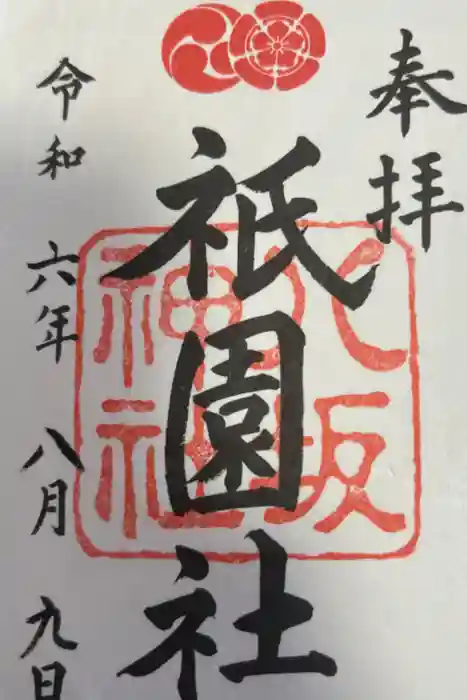 奉拝
八坂
神社
祇園社
令和六年八月九日